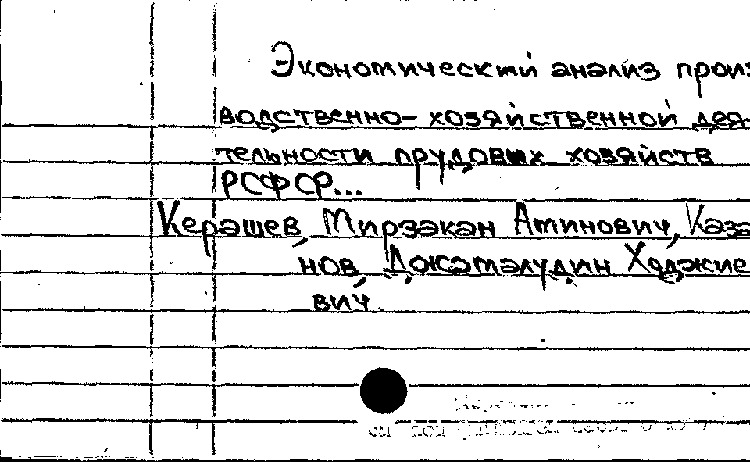 Экономический анализ произ
водственно-хозяйственной дея-
тельности прудовых хозяйств
РСФСР...
Керашев, Мирзакан Аминович, Каза
нов, Джамалудин Хаджие
вич.